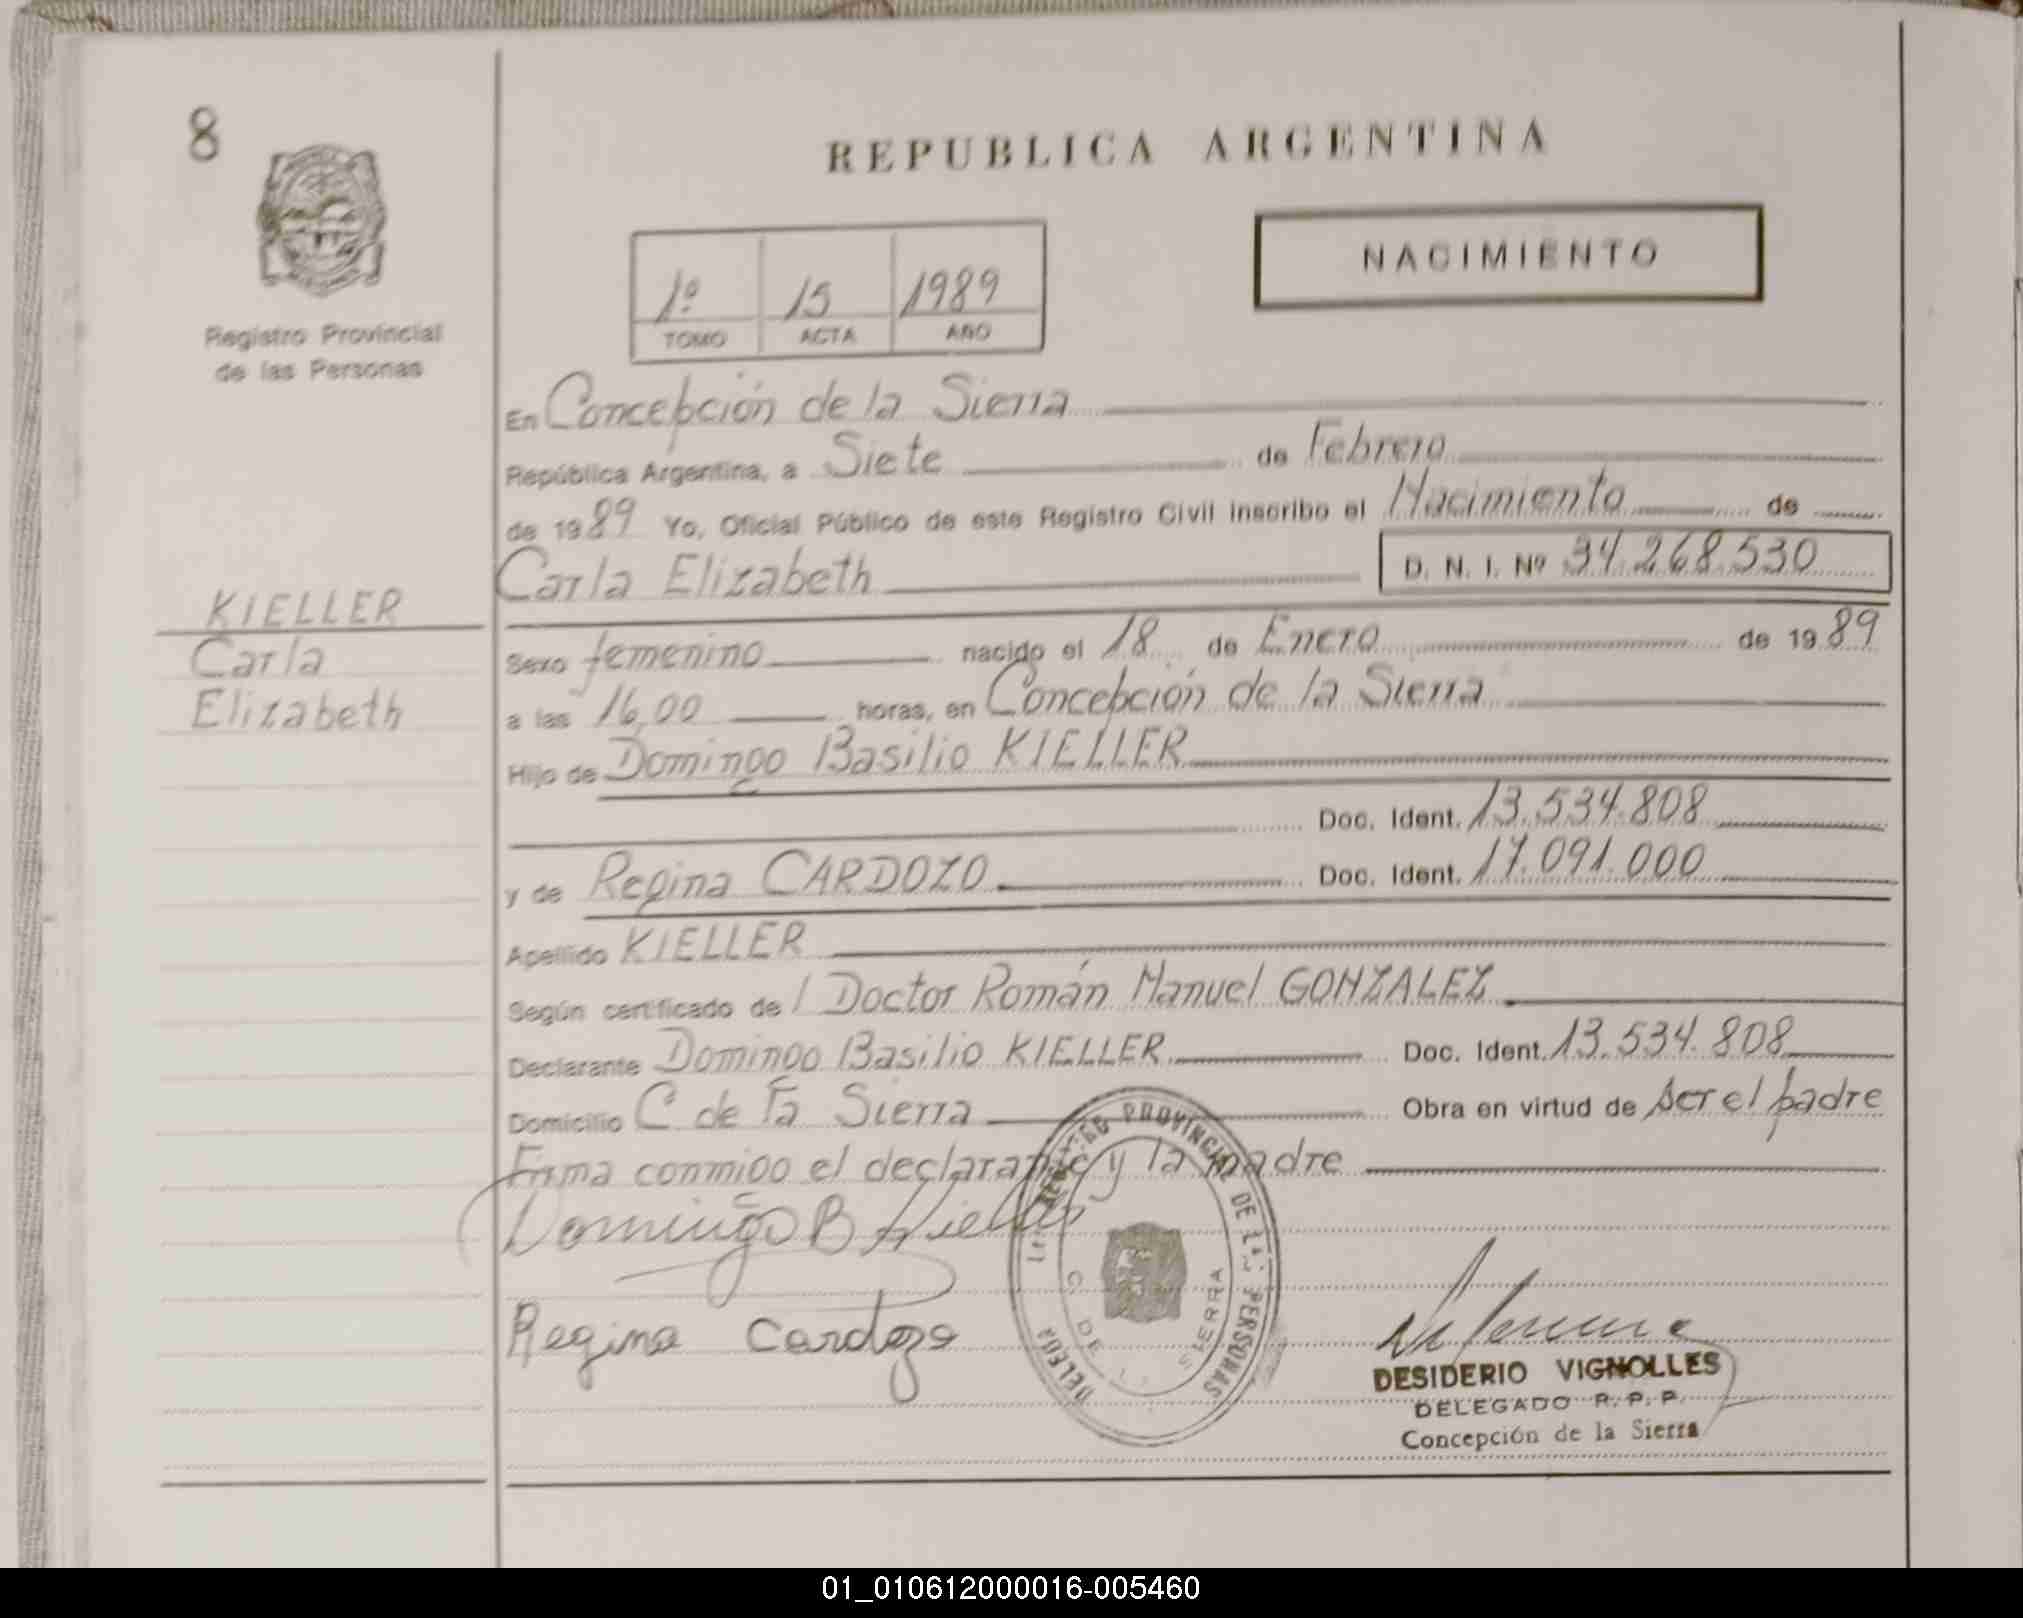 8
REPUBLICA ARGENTINA
NACIMIENTO
1º 15 1989
TOMO ACTA AÑO
Registro Provincial
de las Personas
En Concepción de la Sierra
República Argentina, a Siete de Febrero
de 1989 Yo, Oficial Público de este Registro Civil inscribo el Nacimiento de
Carla Elizabeth D. N. I. Nº 34.268.530
KIELLER
Carla
Elizabeth
Sexo femenino nacido el 18 de Enero de 1989
a las 16,00 horas, en Concepción de la Sierra
Hijo de Domingo Basilio KIELLER
Doc. Ident. 13.534.808
y de Regina CARDOZO Doc. Ident. 17.091.000
Apellido KIELLER
Según certificado de l Doctor Román Manuel GONZALEZ
Declarante Domingo Basilio KIELLER Doc. Ident. 13.534.808
Domicilio C de la Sierra Obra en virtud de ser el padre
Firma conmigo el declarante y la madre
Domingo B Kieller
Regina Cardozo
REGISTRO PROVINCIAL DE LAS PERSONAS
C. DE SIERRA
DESIDERIO VIGNOLLES
DELEGADO R. P. P.
Concepción de la Sierra
01_010612000016-005460